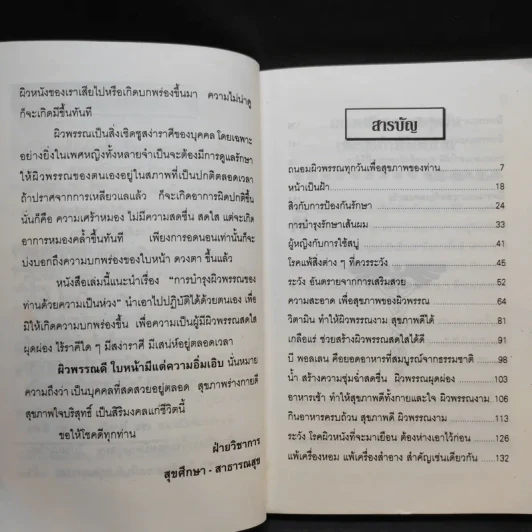 ผิวหนังของเราเสียไปหรือเกิดบกพร่องขึ้นมา ความไม่น่าดู
ก็จะเกิดมีขึ้นทันที
ผิวพรรณเป็นสิ่งเชิดชูสง่าราศีของบุคคล โดยเฉพาะ
อย่างยิ่งในเพศหญิงทั้งหลายจำเป็นจะต้องมีการดูแลรักษา
ให้ผิวพรรณของตนเองอยู่ในสภาพที่เป็นปกติตลอดเวลา
ถ้าปราศจากการเหลียวแลแล้ว ก็จะเกิดอาการผิดปกติขึ้น
นั่นก็คือ ความเศร้าหมอง ไม่มีความสดชื่น สดใส แต่จะเกิด
อาการหมองคล้ำขึ้นทันที เพียงการอดนอนเท่านั้นก็จะ
บ่งบอกถึงความบกพร่องของใบหน้า ดวงตา ขึ้นแล้ว
หนังสือเล่มนี้แนะนำเรื่อง "การบำรุงผิวพรรณของ
ท่านด้วยความเป็นห่วง" นำเอาไปปฏิบัติได้ด้วยตนเอง เพื่อ
มิให้เกิดความบกพร่องขึ้น เพื่อความเป็นผู้มีผิวพรรณสดใส
ผุดผ่อง ไร้ราคีใด ๆ มีสง่าราศี มีเสน่ห์อยู่ตลอดเวลา
ผิวพรรณดี ใบหน้ามีแต่ความอิ่มเอิบ นั่นหมาย
ความถึงว่า เป็นบุคคลที่สดสวยอยู่ตลอด สุขภาพร่างกายดี
สุขภาพใจบริสุทธิ์ เป็นสิริมงคลแก่ชีวิตนี้
ขอให้โชคดีทุกท่าน
ฝ่ายวิชาการ
สุขศึกษา - สาธารณสุข
สารบัญ
ถนอมผิวพรรณทุกวันเพื่อสุขภาพของท่าน 7
หน้าเป็นฝ้า 18
สิวกับการป้องกันรักษา 24
การบำรุงรักษาเส้นผม 33
ผู้หญิงกับการใช้สบู่ 41
โรคแพ้สิ่งต่าง ๆ ที่ควรระวัง 45
ระวัง อันตรายจากการเสริมสวย 52
ความสะอาด เพื่อสุขภาพของผิวพรรณ 64
วิตามิน ทำให้ผิวพรรณงาม สุขภาพดีได้ 81
เกลือแร่ ช่วยสร้างผิวพรรณสดใสได้ดี 91
บี พอลเลน คือยอดอาหารที่สมบูรณ์จากธรรมชาติ 98
น้ำ สร้างความชุ่มฉ่ำสดชื่น ผิวพรรณผุดผ่อง 104
อาหารเช้า ทำให้สุขภาพดีทั้งกายและใจ ผิวพรรณงาม 108
กินอาหารครบถ้วน สุขภาพดี ผิวพรรณงาม 113
ระวัง โรคผิวหนังที่จะมาเยือน ต้องห่างเอาไว้ก่อน 126
แพ้เครื่องหอม แพ้เครื่องสำอาง สำคัญเช่นเดียวกัน 132